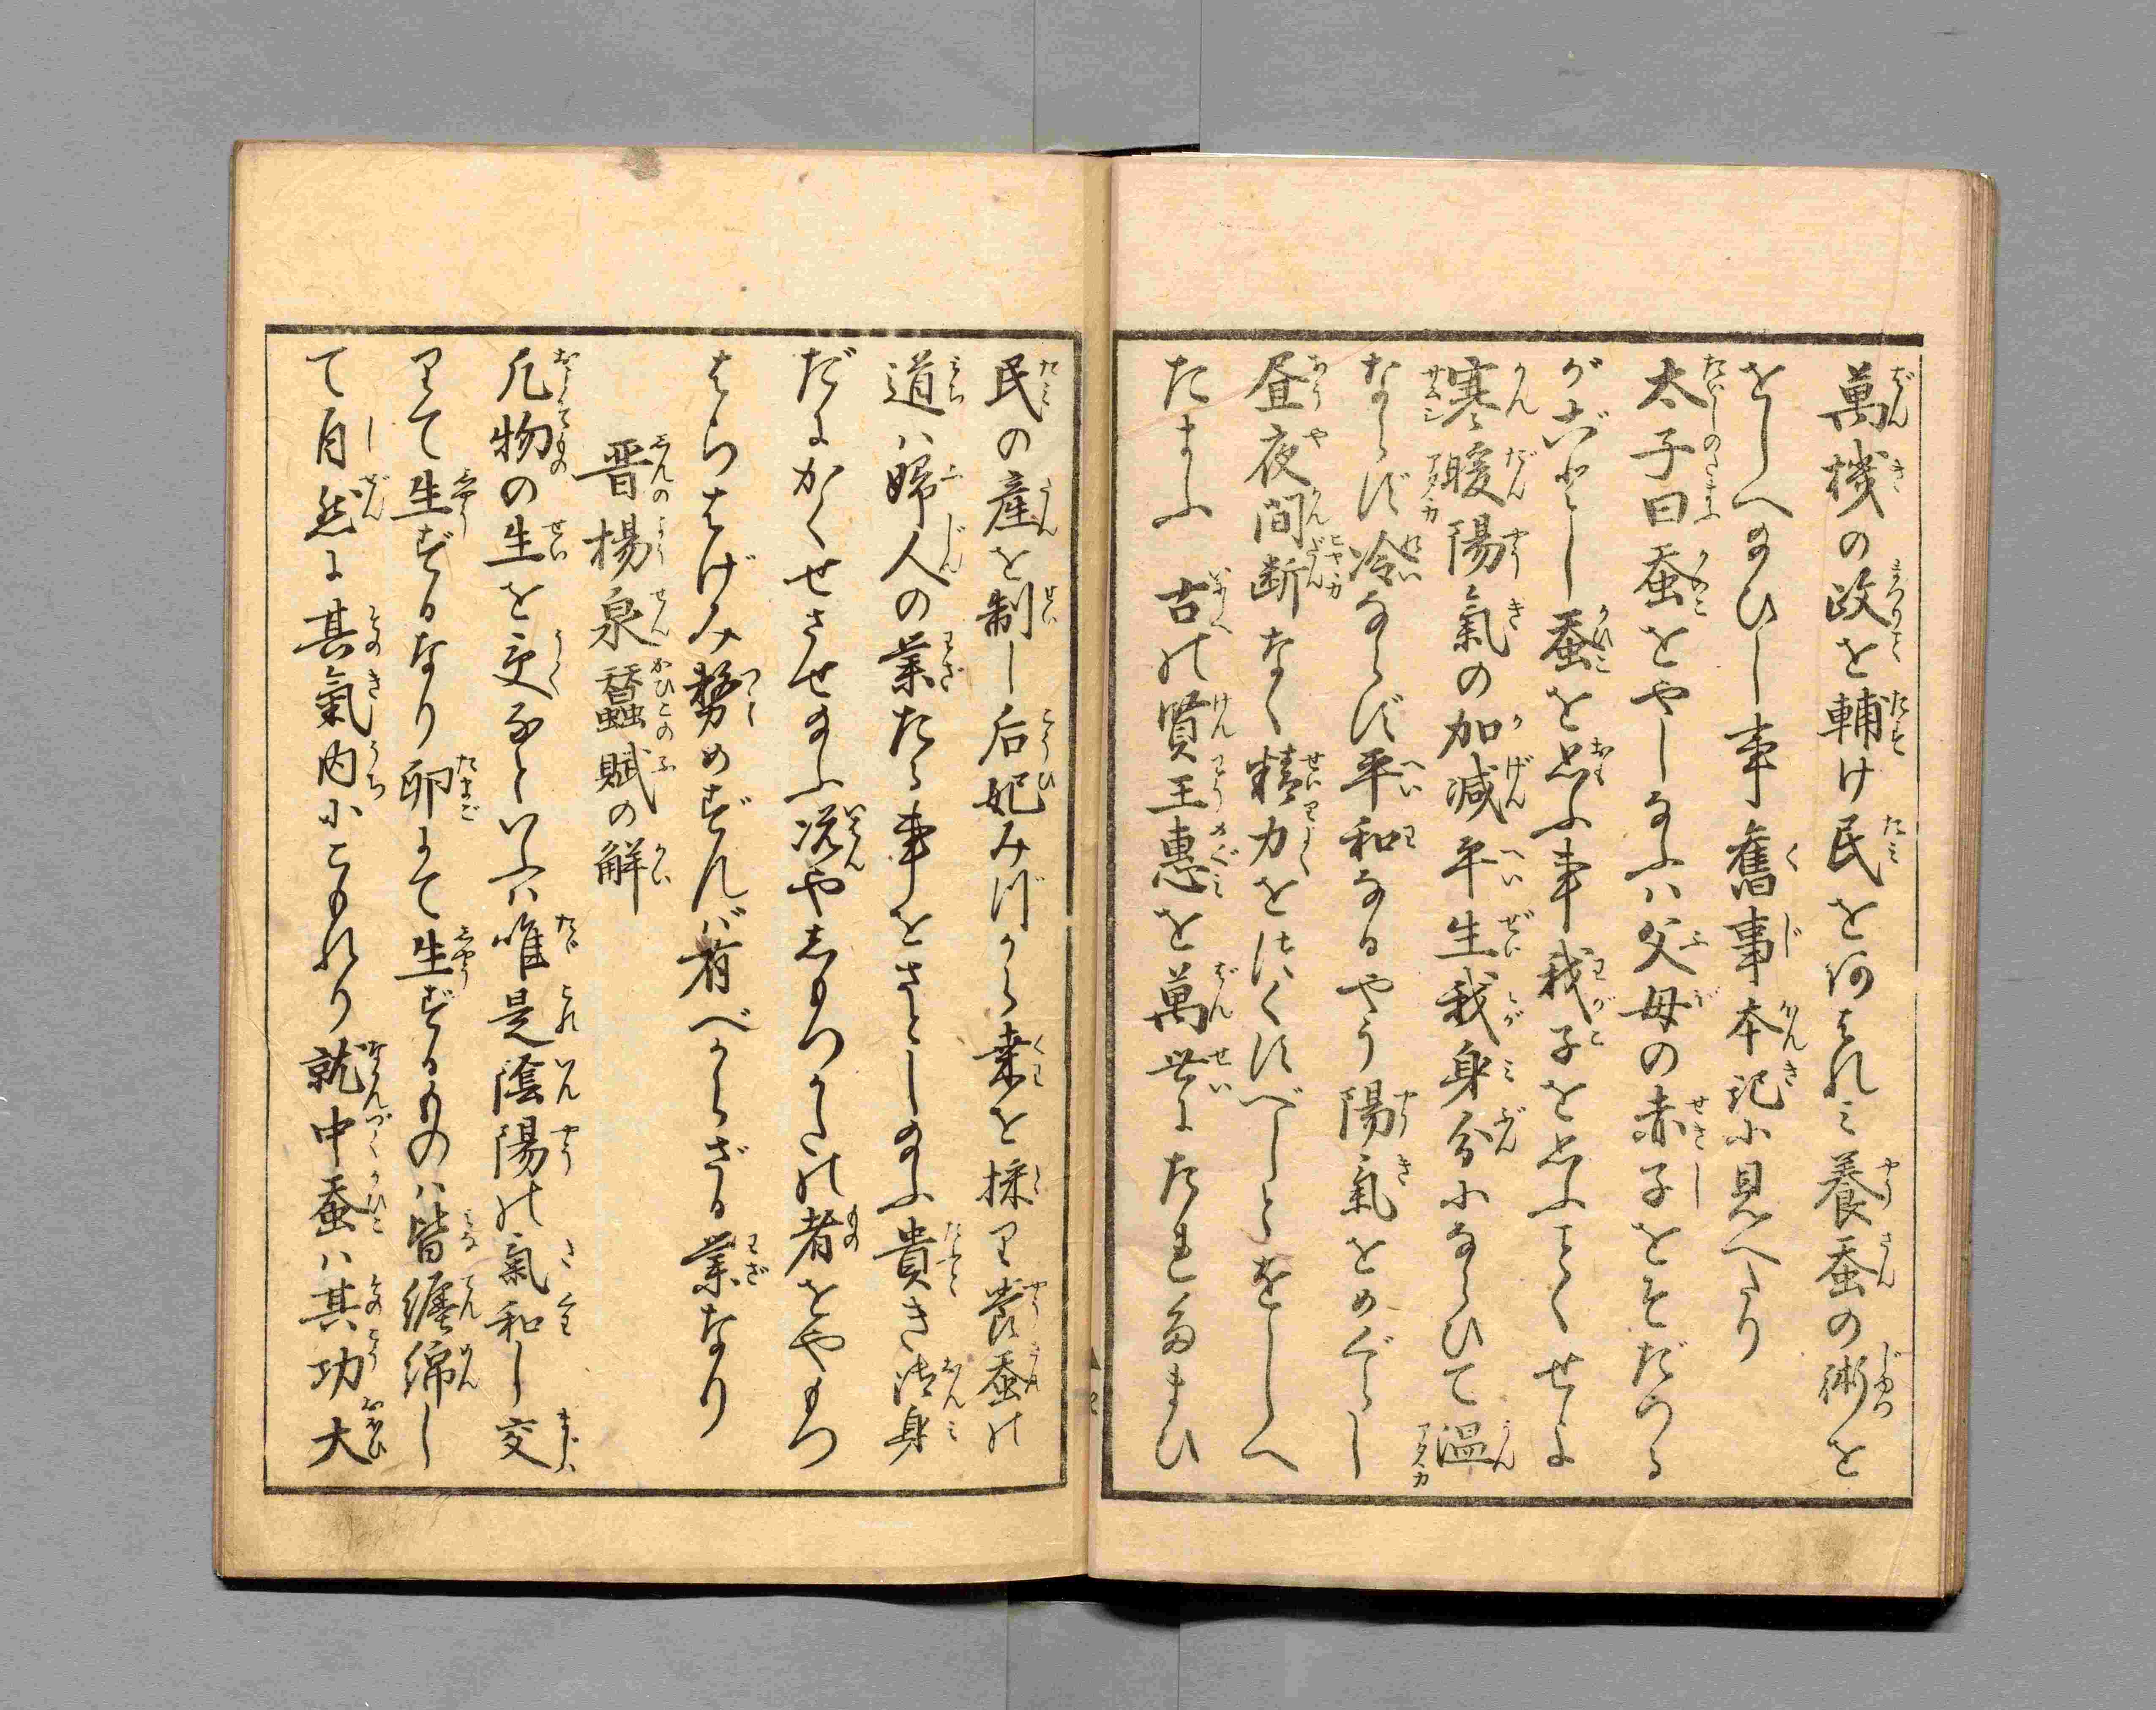 萬機の政を輔け民を河はれミ養蚕の術を
をしへ給ひし事舊事本記に見へたり
太子曰蚕をやしなふハ父母の赤子をそだつる
がごとし蚕を思ふ事我子を思ふごとくせよ
寒暖陽氣の加減平生我身分にならひて温
ならず冷ならず平和なるやう陽氣をめぐらし
昼夜間断なく精力をつくすべしとをしへ
たまふ 古の賢王惠を萬世にたれ給ひ
民の産を制し后妃みづから桒を採り養蚕の
道ハ婦人の業たる事をさとし給ふ貴き御身
だにかくせさせ給ふ况や志もつかたの者をやもつ
はらはげみ務めずんバ有べからざる業なり
晋楊泉蠶賦の解
凡物の生を受るといふハ唯是陰陽の氣和し交
りて生ずるなり卵にて生ずるものハ皆纏綿し
て自然に其氣内にこもれり就中蚕ハ其功大